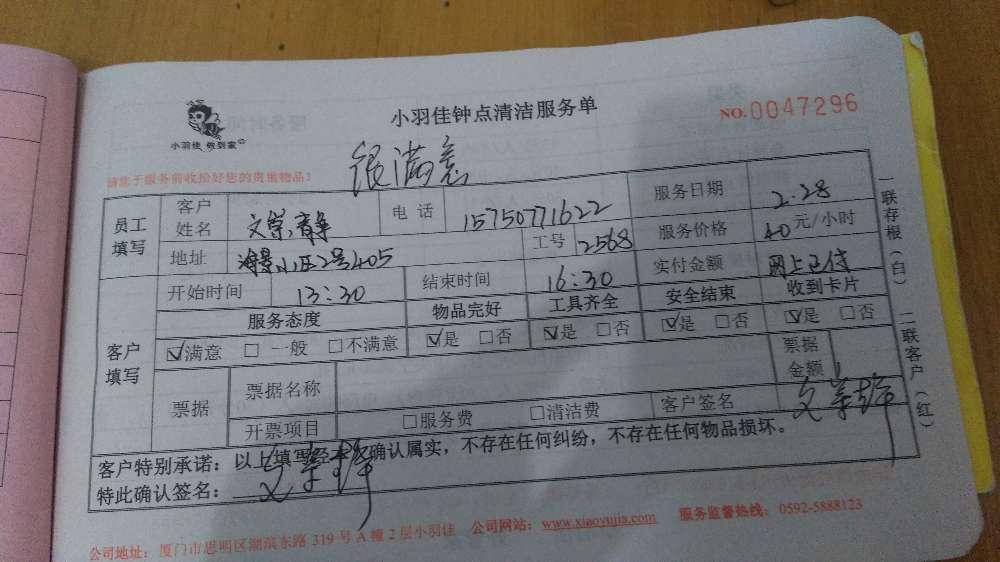 小羽佳钟点清洁服务单
NO.0047296
小羽佳 做到家
请您于服务前收拾好您的贵重物品!
很满意
员工填写 客户姓名 电话 15750771622 服务日期 2.28
地址 海景小区2号405 工号 2568 服务价格 40元/小时
开始时间 13:30 结束时间 16:30 实付金额 网上已付
客户填写 服务态度 物品完好 工具齐全 安全结束 收到卡片
☑满意 □一般 □不满意 ☑是 □否 ☑是 □否 ☑是 □否 ☑是 □否
票据 票据名称 票据金额
开票项目 □服务费 □清洁费 客户签名
客户特别承诺:以上填写经本人确认属实,不存在任何纠纷,不存在任何物品损坏。
特此确认签名:
一联存根(白) 二联客户(红)
公司地址:厦门市思明区湖滨东路319号A幢2层小羽佳 公司网站:www.xiaoyujia.com 服务监督热线:0592-5888123